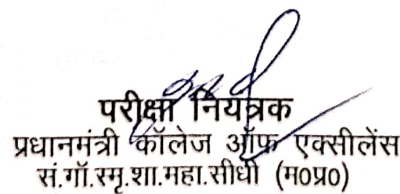 परीक्षा नियंत्रक
प्रधानमंत्री कॉलेज ऑफ एक्सीलेंस
सं.गाँ.स्मृ.शा.महा.सीधी (म०प्र०)